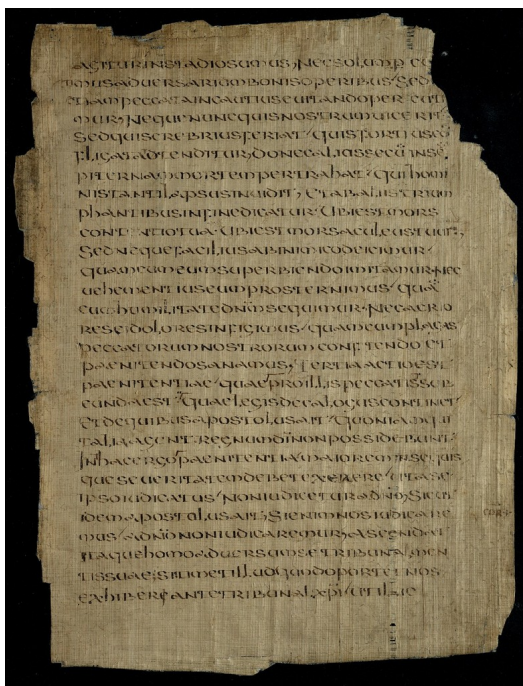 AGITUR INSTADIOSUMUS; NECSOLUM P̲ CU
MUSADUERSARIUMBONISOPERIBUS SED
ETIAMPECCATAINCAUTIUSEUITANDOPERCUTI
MUR; NEQUENUNCQUISNOSTRUMUICERIT
SEDQUISCREBRIUSFERIAT QUISFORTIUSCŪ
FLIGATADTENDITUR; DONECALIOSSECŪ INSE
PITERNAMMORTEMPERTRAHAT QUIHOMI
NISTANTILAPSUSINUIDIT, ETABALIISTRIUM
PHANTIBUSINFINEDICATUR UBIESTMORS
CONTENTIOTUA UBIESTMORSACULEUSTUUS;
SEDNEQUEFACILIUSABINIMICODEICIMUR
QUAMCUMEUMSUPERBIENDOIMITAMUR NEC
UEHEMENTIUSEUMPROSTERNIMUS QUĀ
CUMHUMILITATEDN̅MSEQUIMUR NECACRIO
RESEIDOLORESINFIGIMUS QUAMCUMPLAGAS
PECCATORUMNOSTRORUMCONFITENDO ET
PAENITENDOSANAMUS; TERTIA ACTIOEST
PAENITENTIAE QUAEPROILLISPECCATISSUB
EUNDAEST QUAELEGISDECALOGUSCONTINET
ETDEQUIBUSAPOSTOLUSAIT QUONIAMQUI
TALIAAGENT REGNUMDĪNONPOSSIDEBUNT
INHACERGOPAENITENTIAMAIOREMINSEQUIS
QUESEUERITATEMDEBETEXERERE UTASE
IPSOIUDICATUS NONIUDICETURADN̅O; SICUT
IDEMAPOSTOLUSAIT; SIENIMNOSIUDICARE
MUS ADN̅ONONIUDICAREMUR; ASCENDAT
ITAQUEHOMOADUERSUMSETRIBUNALMEN
TISSUAESITIMETILLUDQUODOPORTETNOS
EXHIBERIANTETRIBUNALXP̅I UTILLIC